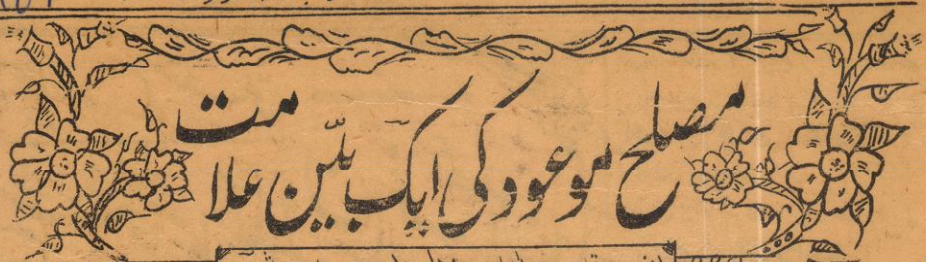 مصلح موعود کی ایک بیّن علامت